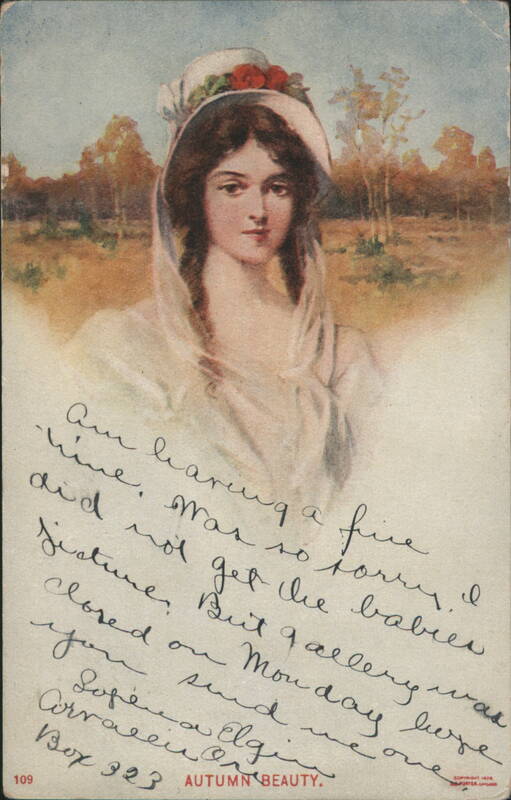 Am having a fine
time. Was so sorry I
did not get the babies
picture. But gallery was
closed on Monday hope
you send me one
Elgin
Corvallis Ore
Box 323
109
AUTUMN BEAUTY.
COPYRIGHT